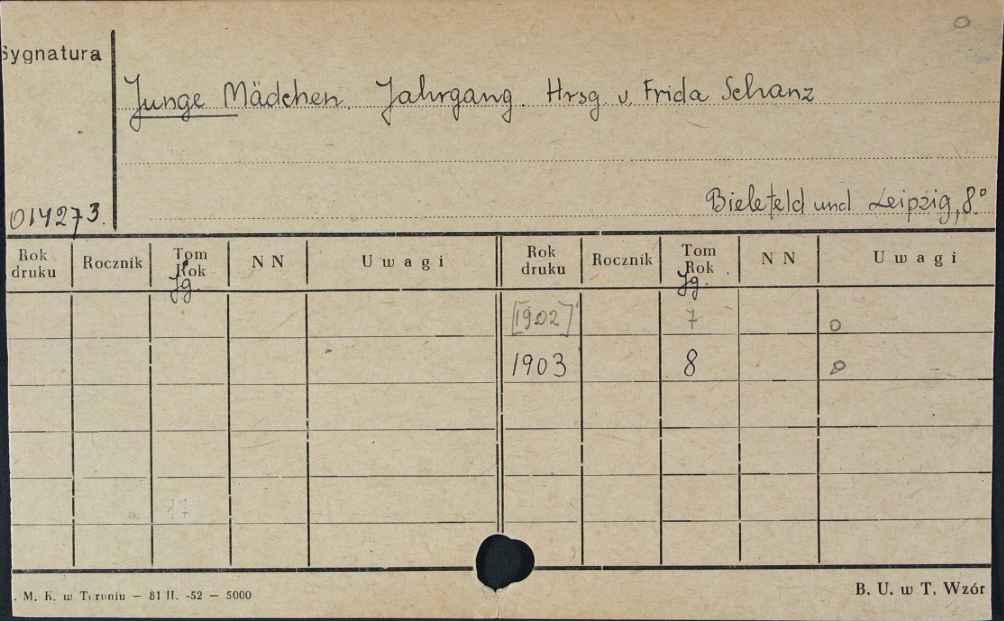 Sygnatura
Junge Mädchen. Jahrgang. Hrsg. v. Frida Schanz
Bielefeld und Leipzig, 8°
014273.
Rok druku Rocznik Tom Rok Jg. N N Uwagi Rok druku Rocznik Tom Rok Jg. N N Uwagi
[1902] 7 o
1903 8 o
17
. M. K. w Toruniu — 81 II. -52 — 5000
B. U. w T. Wzór